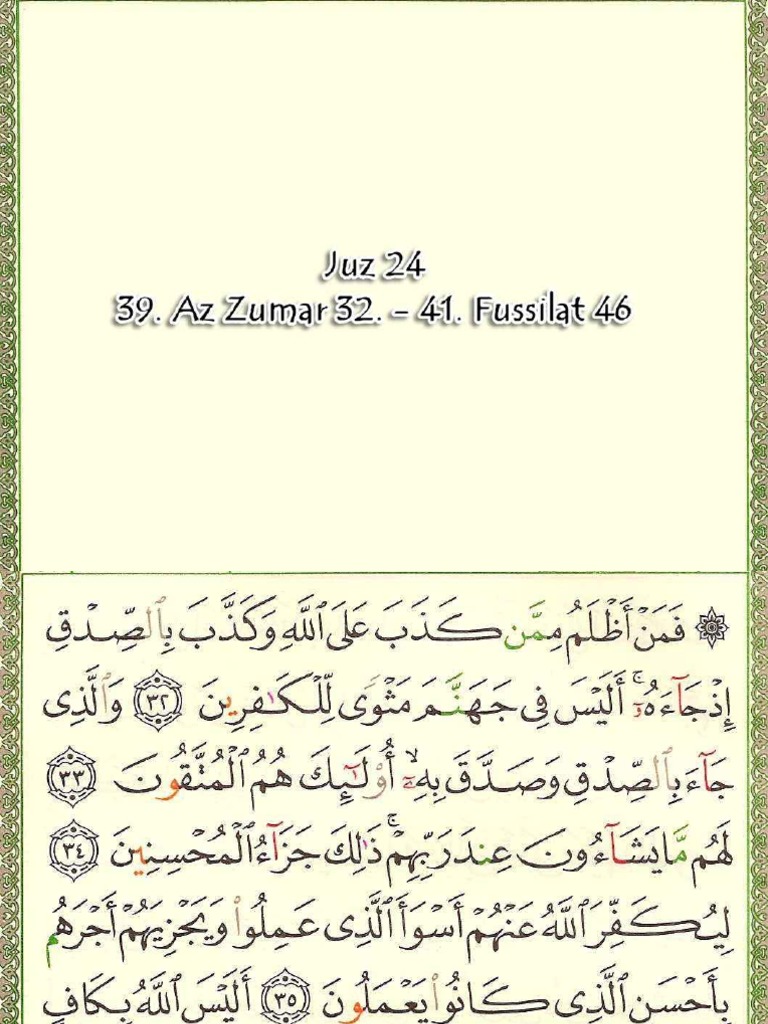 Juz 24
39. Az Zumar 32. - 41. Fussilat 46
۞ فَمَنْ أَظْلَمُ مِمَّن كَذَبَ عَلَى ٱللَّهِ وَكَذَّبَ بِٱلصِّدْقِ
إِذْ جَآءَهُۥٓ ۚ أَلَيْسَ فِى جَهَنَّمَ مَثْوًى لِّلْكَـٰفِرِينَ ٣٢ وَٱلَّذِى
جَآءَ بِٱلصِّدْقِ وَصَدَّقَ بِهِۦٓ ۙ أُو۟لَـٰٓئِكَ هُمُ ٱلْمُتَّقُونَ ٣٣
لَهُم مَّا يَشَآءُونَ عِندَ رَبِّهِمْ ۚ ذَٰلِكَ جَزَآءُ ٱلْمُحْسِنِينَ ٣٤
لِيُكَفِّرَ ٱللَّهُ عَنْهُمْ أَسْوَأَ ٱلَّذِى عَمِلُوا۟ وَيَجْزِيَهُمْ أَجْرَهُم
بِأَحْسَنِ ٱلَّذِى كَانُوا۟ يَعْمَلُونَ ٣٥ أَلَيْسَ ٱللَّهُ بِكَافٍ